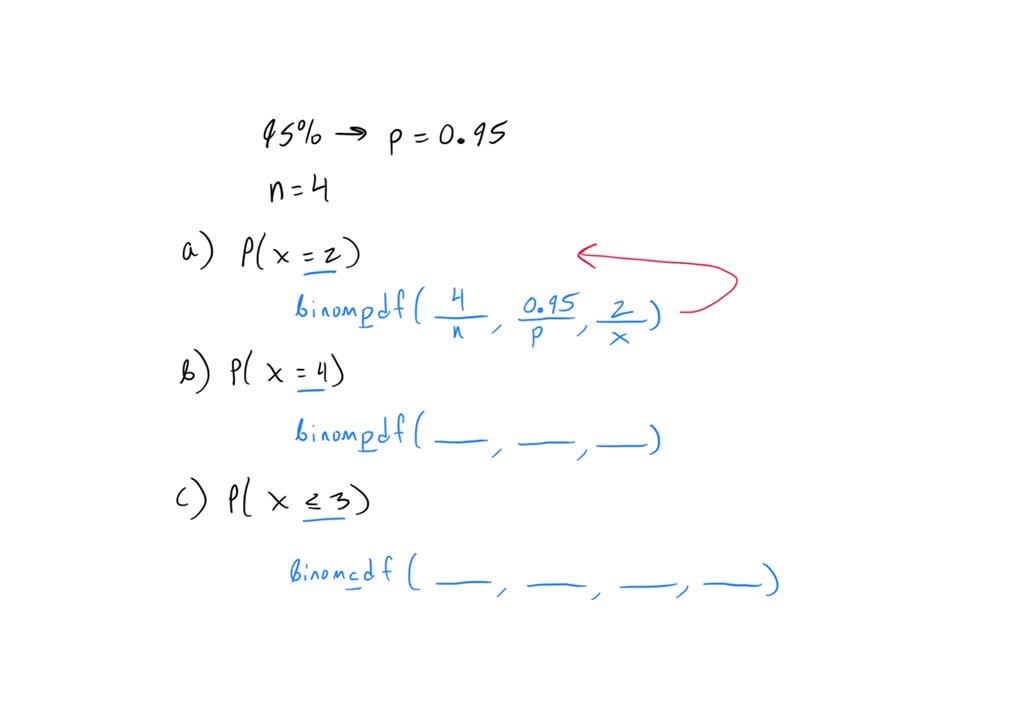 95% → p = 0.95
n = 4
a) P(x = 2)
binompdf( 4, 0.95, 2 )
n p x
b) P(x = 4)
binompdf( __, __, __ )
c) P(x ≤ 3)
binomcdf( __, __, __, __ )